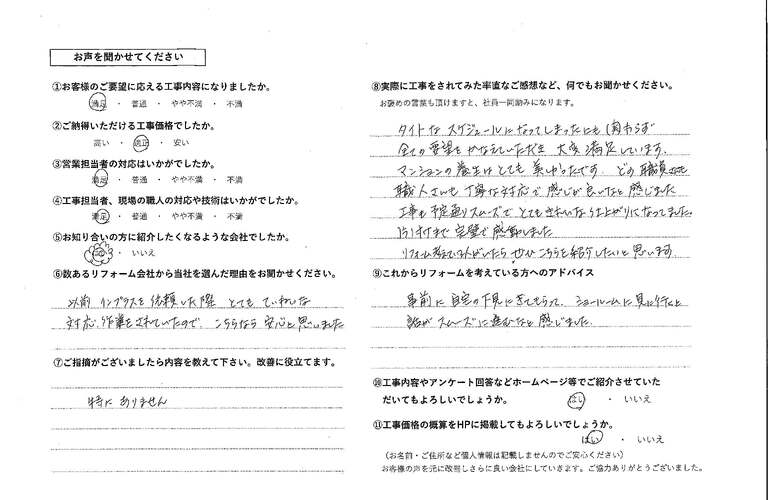 お声を聞かせてください
①お客様のご要望に応える工事内容になりましたか。
満足 ・ 普通 ・ やや不満 ・ 不満
②ご納得いただける工事価格でしたか。
高い ・ 適正 ・ 安い
③営業担当者の対応はいかがでしたか。
満足 ・ 普通 ・ やや不満 ・ 不満
④工事担当者、現場の職人の対応や技術はいかがでしたか。
満足 ・ 普通 ・ やや不満 ・ 不満
⑤お知り合いの方に紹介したくなるような会社でしたか。
はい ・ いいえ
⑥数あるリフォーム会社から当社を選んだ理由をお聞かせください。
以前 インプラスを依頼した際 とても ていねいな
対応、作業をされていたので、こちらなら安心と思いました
⑦ご指摘がございましたら内容を教えて下さい。改善に役立てます。
特に ありません
⑧実際に工事をされてみた率直なご感想など、何でもお聞かせください。
お褒めの言葉も頂けますと、社員一同励みになります。
タイトな スケジュールになってしまったにも関わらず
全ての要望をかなえていただき 大変 満足しています。
マンションの養生はとても美しかったです。どの職員さんも
職人さんも丁寧な対応で感じが良いなと感じました
工事も予定通りスムーズで とてもきれいな仕上がりになってました。
片付けまで完璧で感動しました
リフォーム考えている人がいたら ぜひこちらを紹介したいと思います。
⑨これからリフォームを考えている方へのアドバイス
事前に自宅の下見にきてもらって、ショールームに見に行くと
話がスムーズに進むなと感じました。
⑩工事内容やアンケート回答などホームページ等でご紹介させていた
だいてもよろしいでしょうか。 はい ・ いいえ
⑪工事価格の概算をHPに掲載してもよろしいでしょうか。
はい ・ いいえ
（お名前・ご住所など個人情報は記載しませんのでご安心ください）
お客様の声を元に改善しさらに良い会社にしていきます。ご協力ありがとうございました。